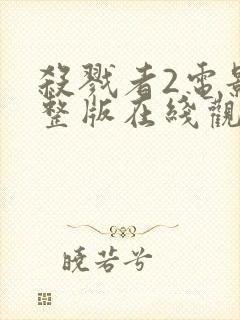 殺戮者2電影
整版在綫觀
曉若兮